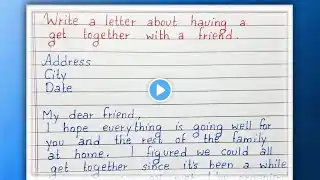 Write a letter about having a
get together with a friend.
Address
City
Date
My dear friend,
I hope everything is going well for
you and the rest of the family
at home. I figured we could all
get together since it's been a while